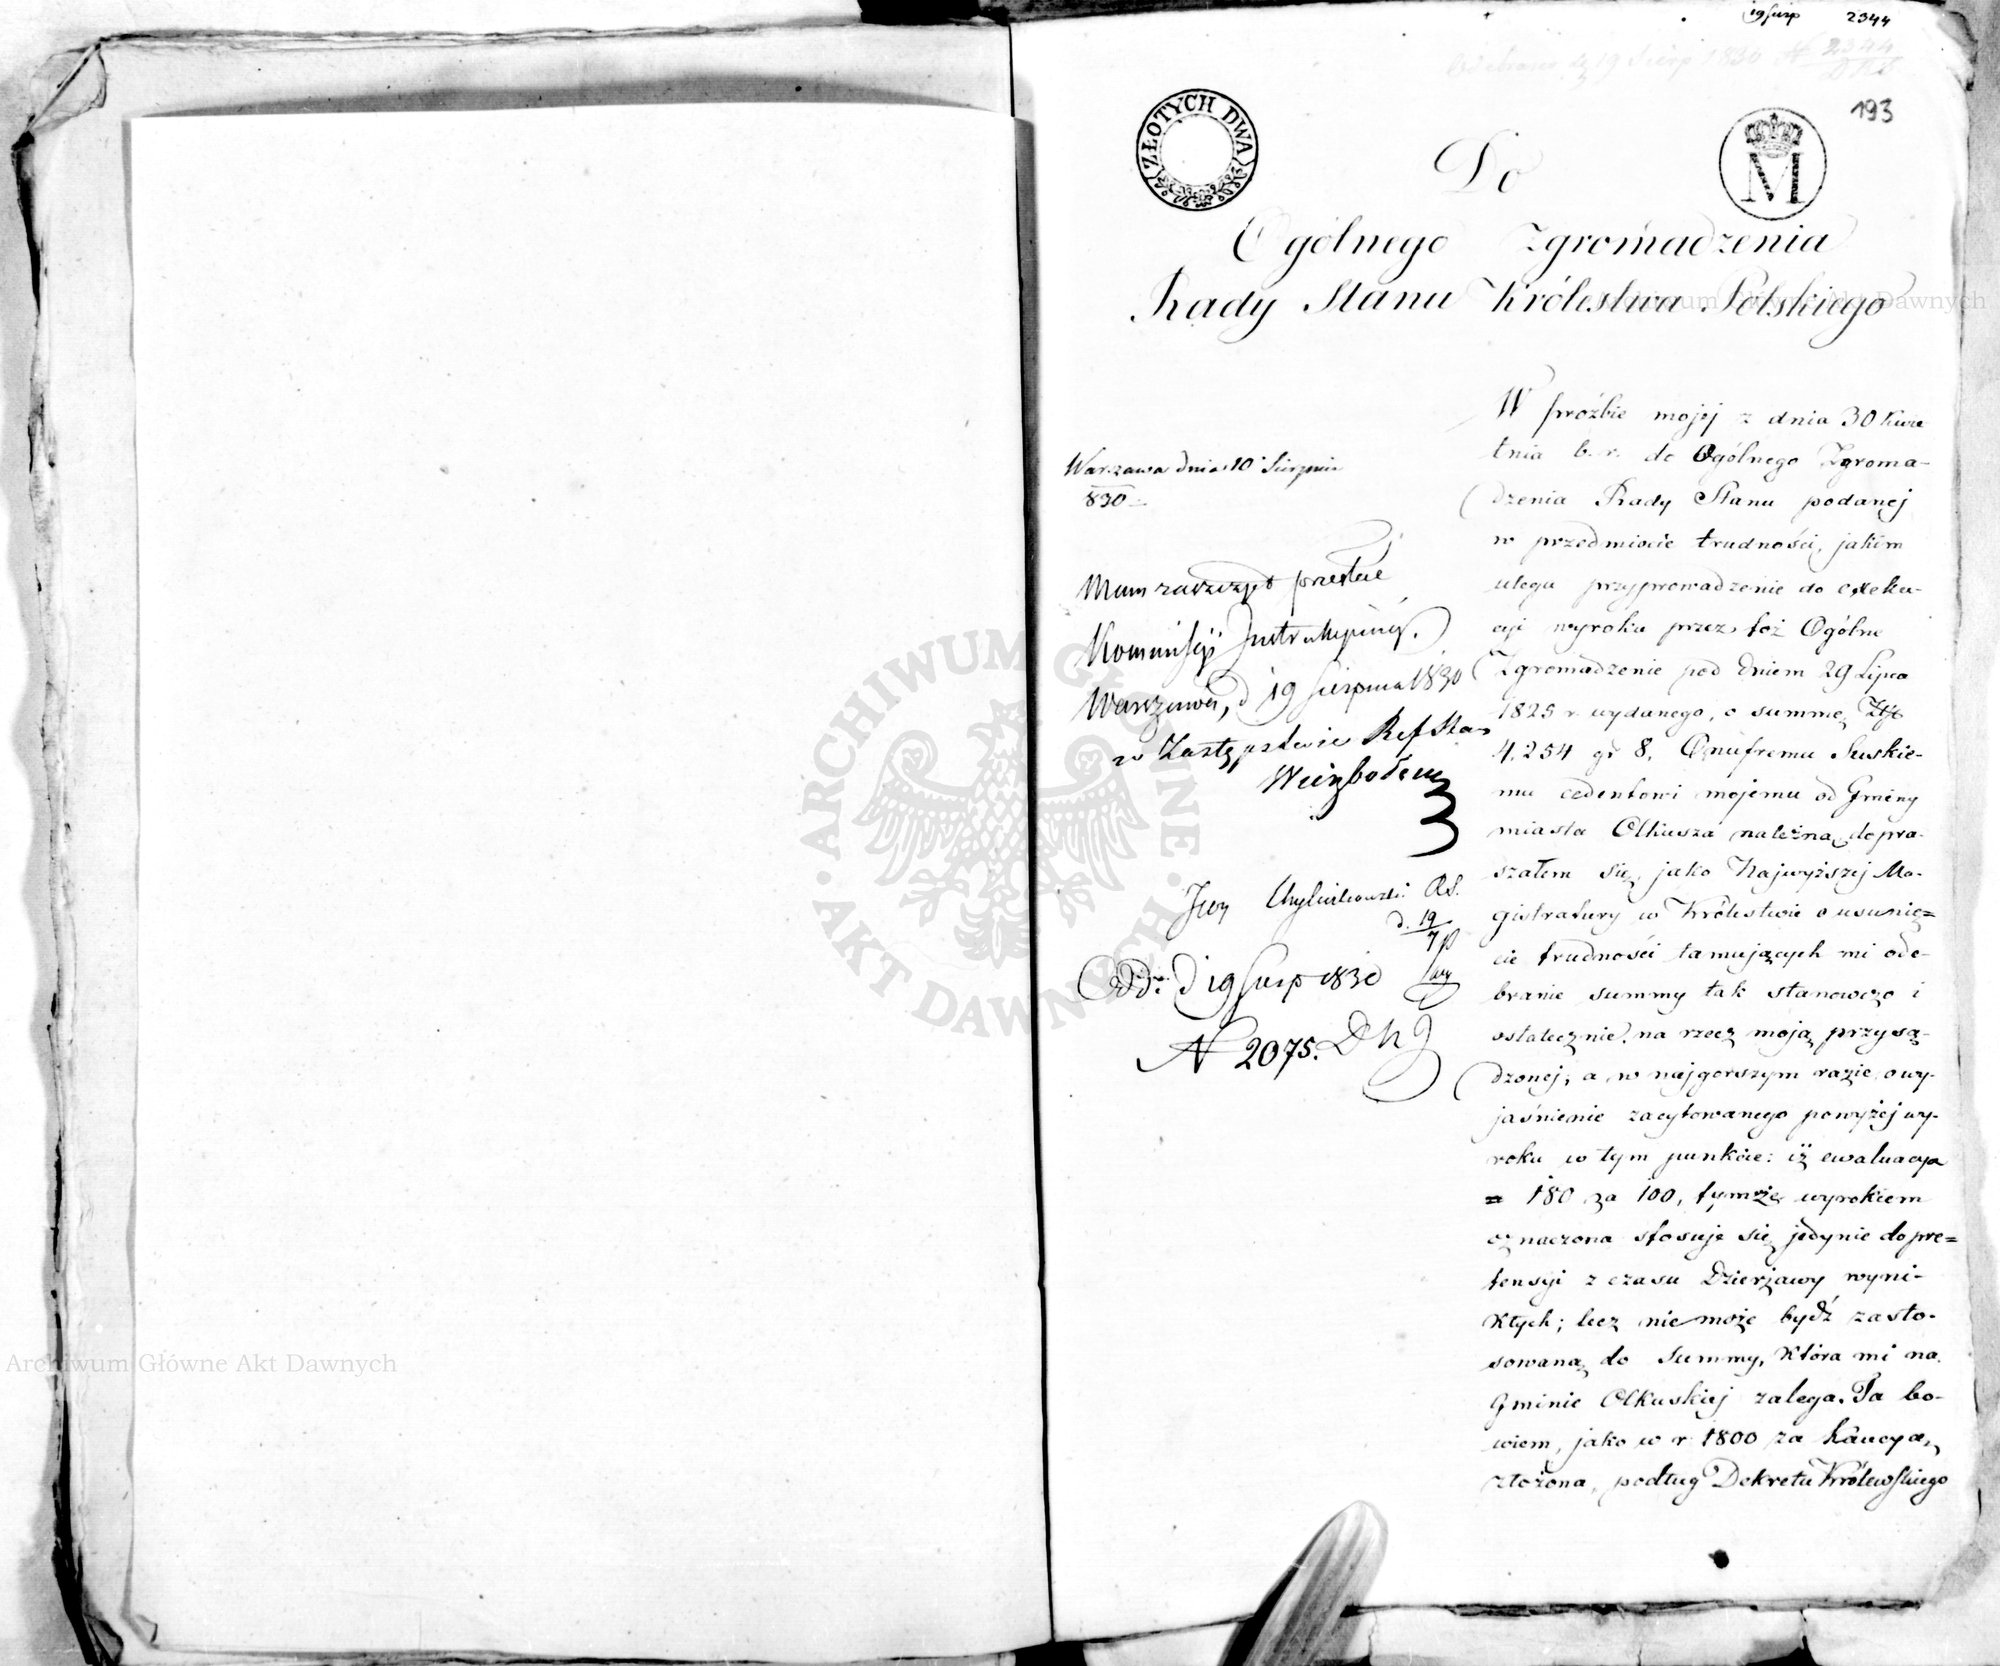 19 Sierp 2344
Odebrano d. 19 Sierp 1830 N 2344
193
ZŁOTYCH DWA
M
Do
Ogólnego Zgromadzenia
Rady Stanu Królestwa Polskiego
Warszawa dnia 10 Sierpnia
830
Mam zaszczyt przesłać
Kommissyi Instrukcyinéy.
Warszawa, d 19 Sierpnia 1830
w Zastępstwie Ref Sta
d. 19
Odd. d 19 Sierp 1830
N 2075.
W proźbie mojéj z dnia 30 Kwie
tnia b. r. do Ogólnego Zgroma-
dzenia Rady Stanu podanéj
w przedmiocie trudności, jakim
ulega przyprowadzenie do exeku-
cyi wyroku przez toż Ogólne
Zgromadzenie pod dniem 29 Lipca
1825 r. wydanego, o summę Złp
4,254 gr 8, Onufremu Suskie-
mu cedentowi mojemu od Gminy
miasta Olkusza należną, dopra-
szałem się, jako Najwyższéj Ma-
gistratury w Królestwie o usunię=
cie trudności tamujących mi ode-
branie summy tak stanowczo i
ostatecznie na rzecz moją przysą-
dzonéj, a w najgorszym razie, o wy-
jaśnienie zacytowanego powyżéj wy-
roku w tym punkcie: iż ewaluacya
= 180 za 100, tymże wyrokiem
oznaczona stosuje się jedynie do pre=
tensyi z czasu Dzierżawy wyni-
kłych; lecz nie może bydź zasto-
sowaną do Summy, która mi na
Gminie Olkuskiéj zalega. Ta bo-
wiem, jako w r 1800 za kaucyą
złożona, podług Dekretu Królewskiego
ARCHIWUM GŁÓWNE AKT DAWNYCH
Archiwum Główne Akt Dawnych
Archiwum Główne Akt Dawnych